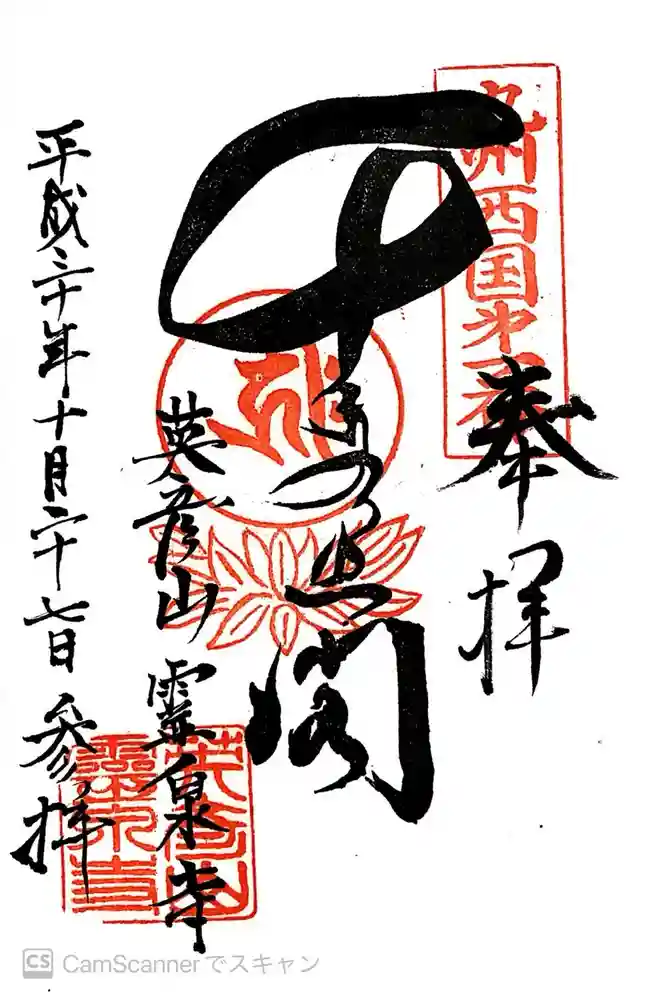 九州西国第一番
奉拝
千手乃閣
英彦山 靈泉寺
平成三十年十月二十七日参拝
英彦山
靈泉寺
CS CamScannerでスキャン